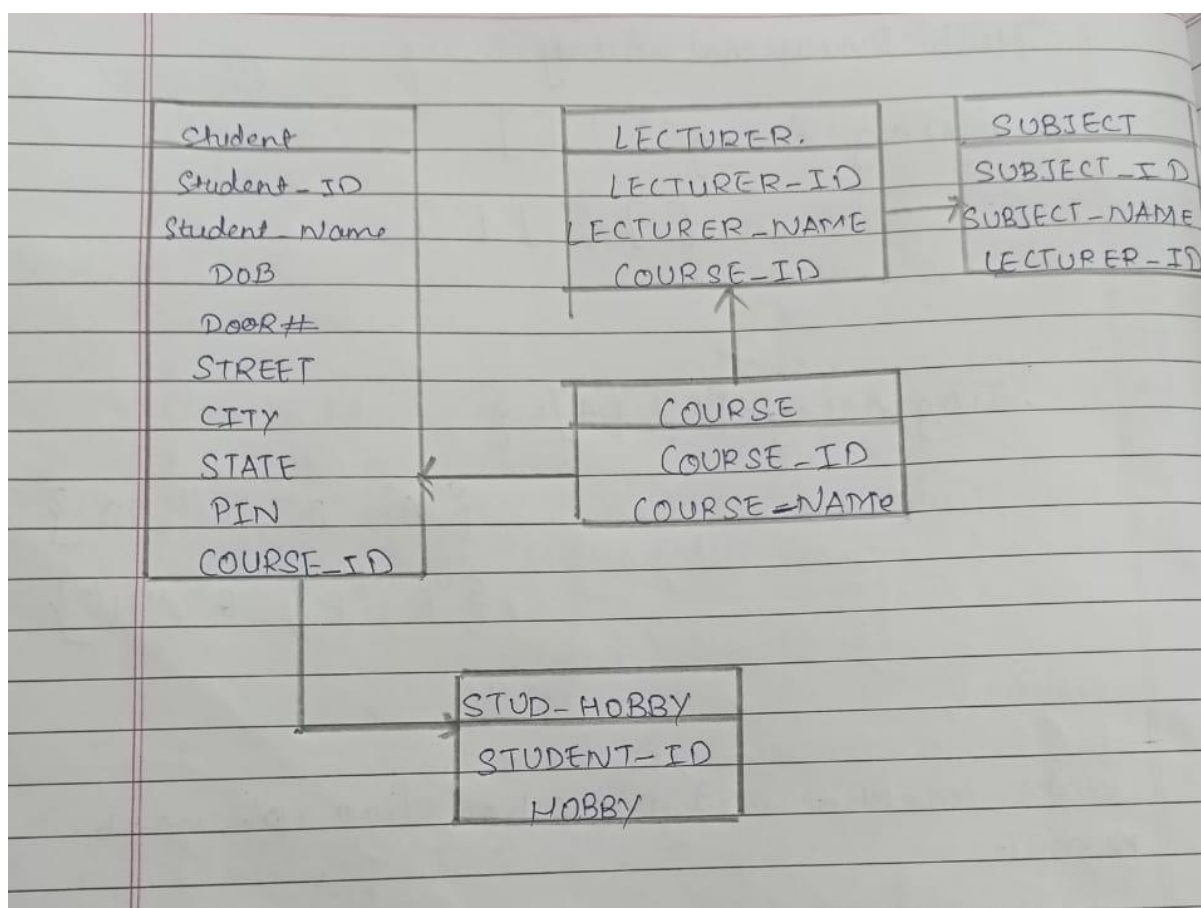 Student
Student_ID
Student_Name
DOB
DOOR#
STREET
CITY
STATE
PIN
COURSE_ID
LECTURER.
LECTURER_ID
LECTURER_NAME
COURSE_ID
SUBJECT
SUBJECT_ID
SUBJECT_NAME
LECTURER_ID
COURSE
COURSE_ID
COURSE_NAME
STUD-HOBBY
STUDENT-ID
HOBBY